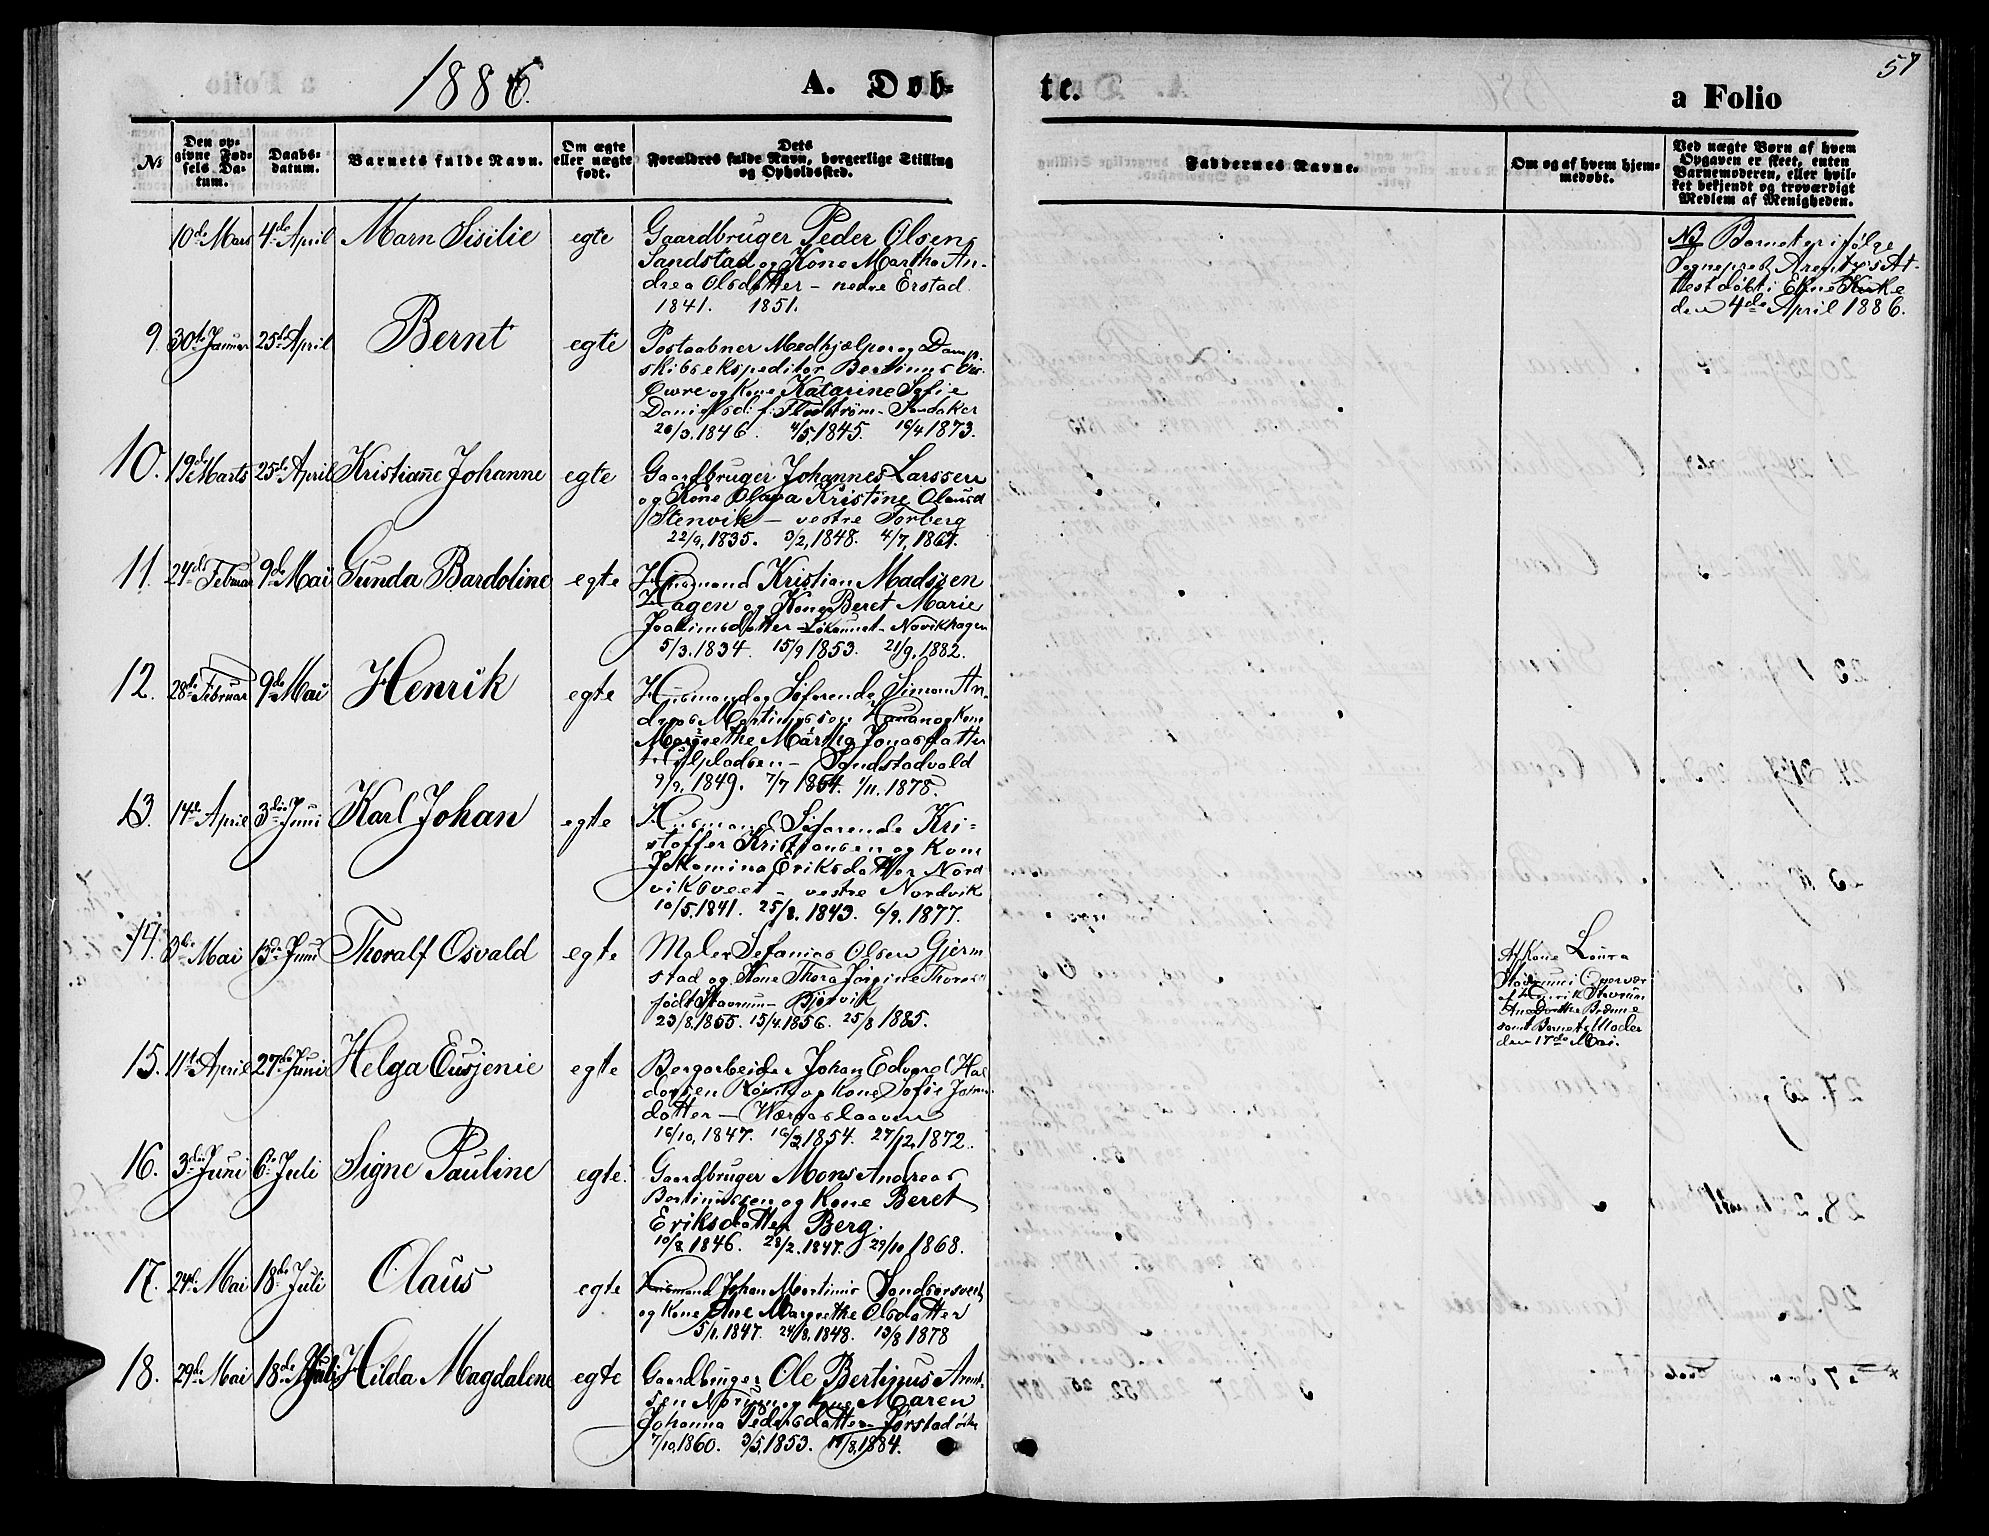 1886.
A. Døb-
No
Den op-
givne Fød-
sels Da-
tum.
Daabs-
datum.
Barnets fulde Navn.
Om ægte
eller uægte
født.
Dets
Forældres fulde Navn, borgerlige Stilling
og Opholdssted.
10de Mars 4de April Marn Sisilie egte Gaardbruger Peder Olsen
Sandstad og Kone Martha An-
drea Olsdatter - nedre Erstad
1841. 1851.
9. 30te Januar 25de April Bernt egte Postaabner Medhjælper og Damp-
skibsekspeditør Bertinus
Øwre og Kone Katarine Sofie
Danielsd: f:
26/3.1846. 4/5.1845. 16/4.1873.
10. 19de Marts 25de April Kristiane Johanne egte Gaardbruger Johannes Larssen
og Kone Olava Kristine Olausd
Stenvik - vestre Forberg
22/9.1835. 3/2.1848. 4/7.1867.
11. 24de Februar 9de Mai Gunda Bardoline egte Husmand Kristian Madssen
Hagen og Kone Beret Marie
Joakimsdatter - Nøvikhagen
5/3.1834. 15/9 1853. 21/9.1882.
12. 28de Februar 9de Mai Henrik egte Husmand og Søfarende Simon An-
dreas Martinussen og Kone
Margrethe Martha Jonasdatter
- Sandstadvald
9/9.1849. 7/7 1864. 1/11.1878.
13. 14de April 3die Juni Karl Johan egte Husmand Søfarende Kri-
stoffer Kristiansen og Kone
Jakomina Eriksdatter Nord
viksveet - vestre Nordvik
10/5.1841. 25/8.1843. 6/9.1877.
14. 3die Mai 13de Juni Thoralf Osvald egte Maler Sefanias Olsen Gjerm
stad og Kone Thora Jørgine
født Stavrum - Bjørvik
23/8.1855. 15/4.1856. 25/8 1885.
15. 11te April 27de Juni Helga Eusjenie egte Bergarbeider Johan Edvard Hal
dorsen og Kone Sofie
datter -
16/10.1847. 16/3 1854. 27/12.1872.
16. 3die Juni 6te Juli Signe Pauline egte. Gaardbruger Mons Andreas
Bertinussen og Kone Beret
Eriksdatter Berg.
10/8.1846. 28/2.1847. 29/10.1868.
17. 24de Mai 18de Juli Olaus egte Husmand Johan Martinus
og Kone Ane Margrethe Olsdatter
5/1.1847. 24/8.1848. 13/8 1878
18. 29de Mai 18de Juli Hilda Magdalene egte Gaardbruger Ole Bertinus Arent-
sen og Kone Maren
Johanna Pedersdatter - Jørstad
7/10.1860. 3/5.1853. 17/8.1884.
te.
a Folio
57
Faddernes Navne.
Om og af hvem hjem-
medøbt.
Ved uægte Børn af hvem
Opgaven er skeet, enten
Barnemoderen, eller hvil-
ket bekjendt og troværdigt
Medlem af Menigheden.
NB Barnet er ifølge
Sognepræst Arentz's At-
test døbt i Ekne Kirke
den 4de April 1886.
Af Kone Laura
af Henrik Stavrum
Ane Dorthe
samt Barnets Moder
den 17de Mai.